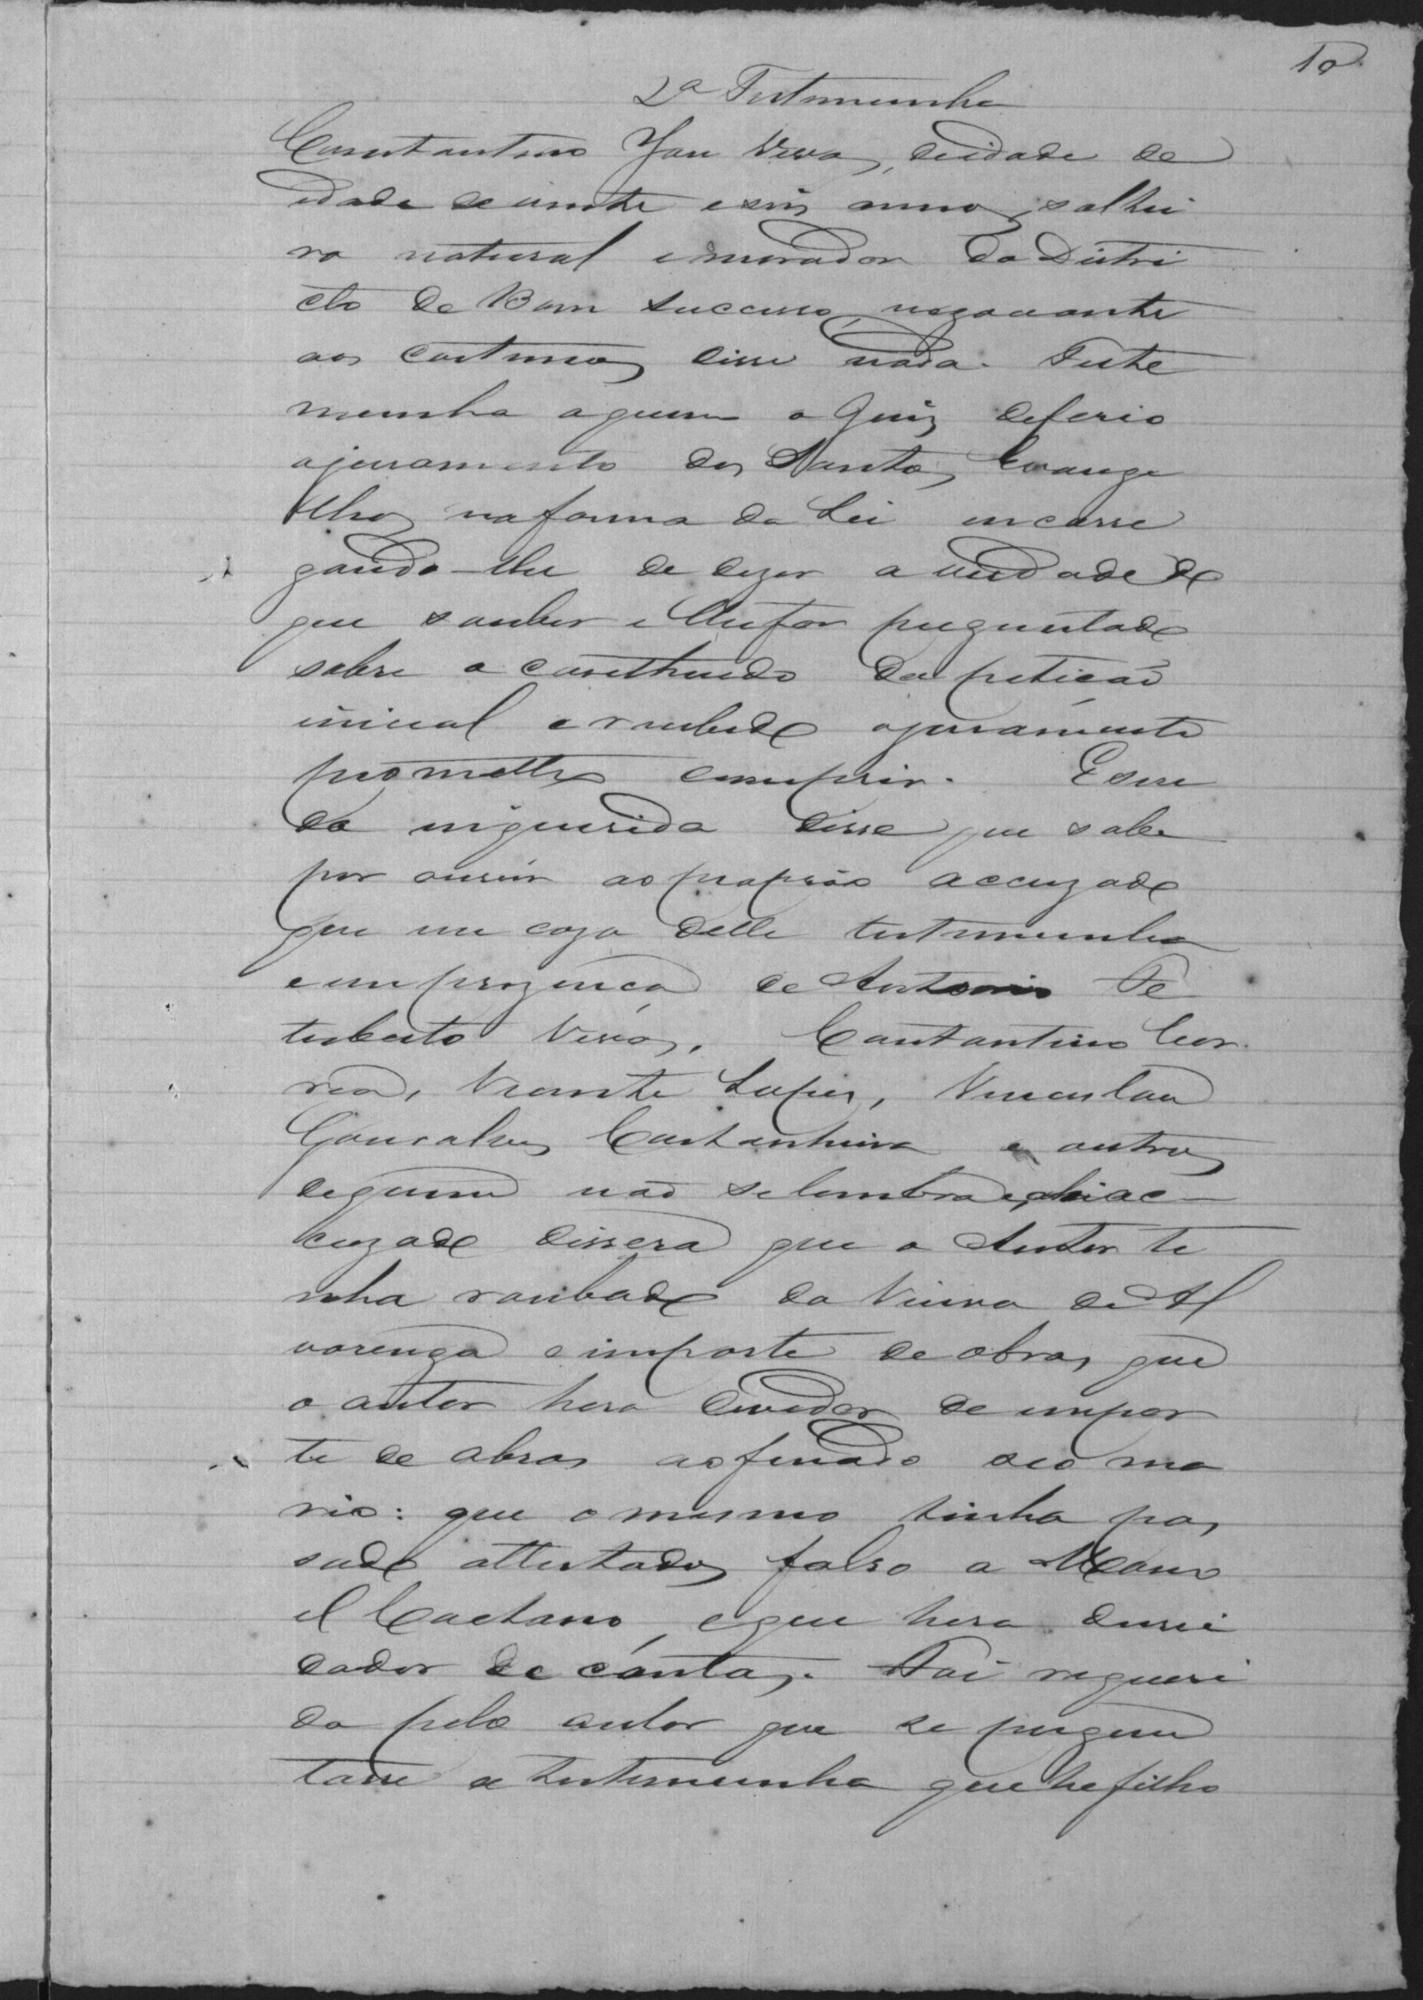 10
2ª Testemunha
Constantino José Vieira, deidade de
idade de vinte e seis annos, saltei
ro natural emorador do Distri
cto de Bom Successo, negociante
aos costumes disse nada. Teste
munha aquem o Juiz deferio
ojuramento dos Santos Evange
lhos naforma da Lei encarre
gando-lhe de dizer a verdade do
que souber e lhefor perguntado
sobre o constheudo da peticaõ
inicial e recebido ojuramento
prometteo cumprir. E sen
do inquerida disse que sabe
por ouvir aoproprio accuzado
que em caza delle testemunha
e emprezenca de Antonio
Vieira, Constantino Cor
rea, Vicente Lopes, Venceslau
Goncalves Castanheira e outros
dequem não selembra, e
cuzado dissera que o Autor ti
nha roubado da Viuva de Al
varenga oimporte de obras que
o autor hera devedor de impor
te de obras aofinado seo ma
rio: que omesmo tinha pas
sado attestados falso a Mano
el Caetano, eque hera
dador de contas. Foi requeri
do pelo autor que se pergun
tasse a testemunha que he filho